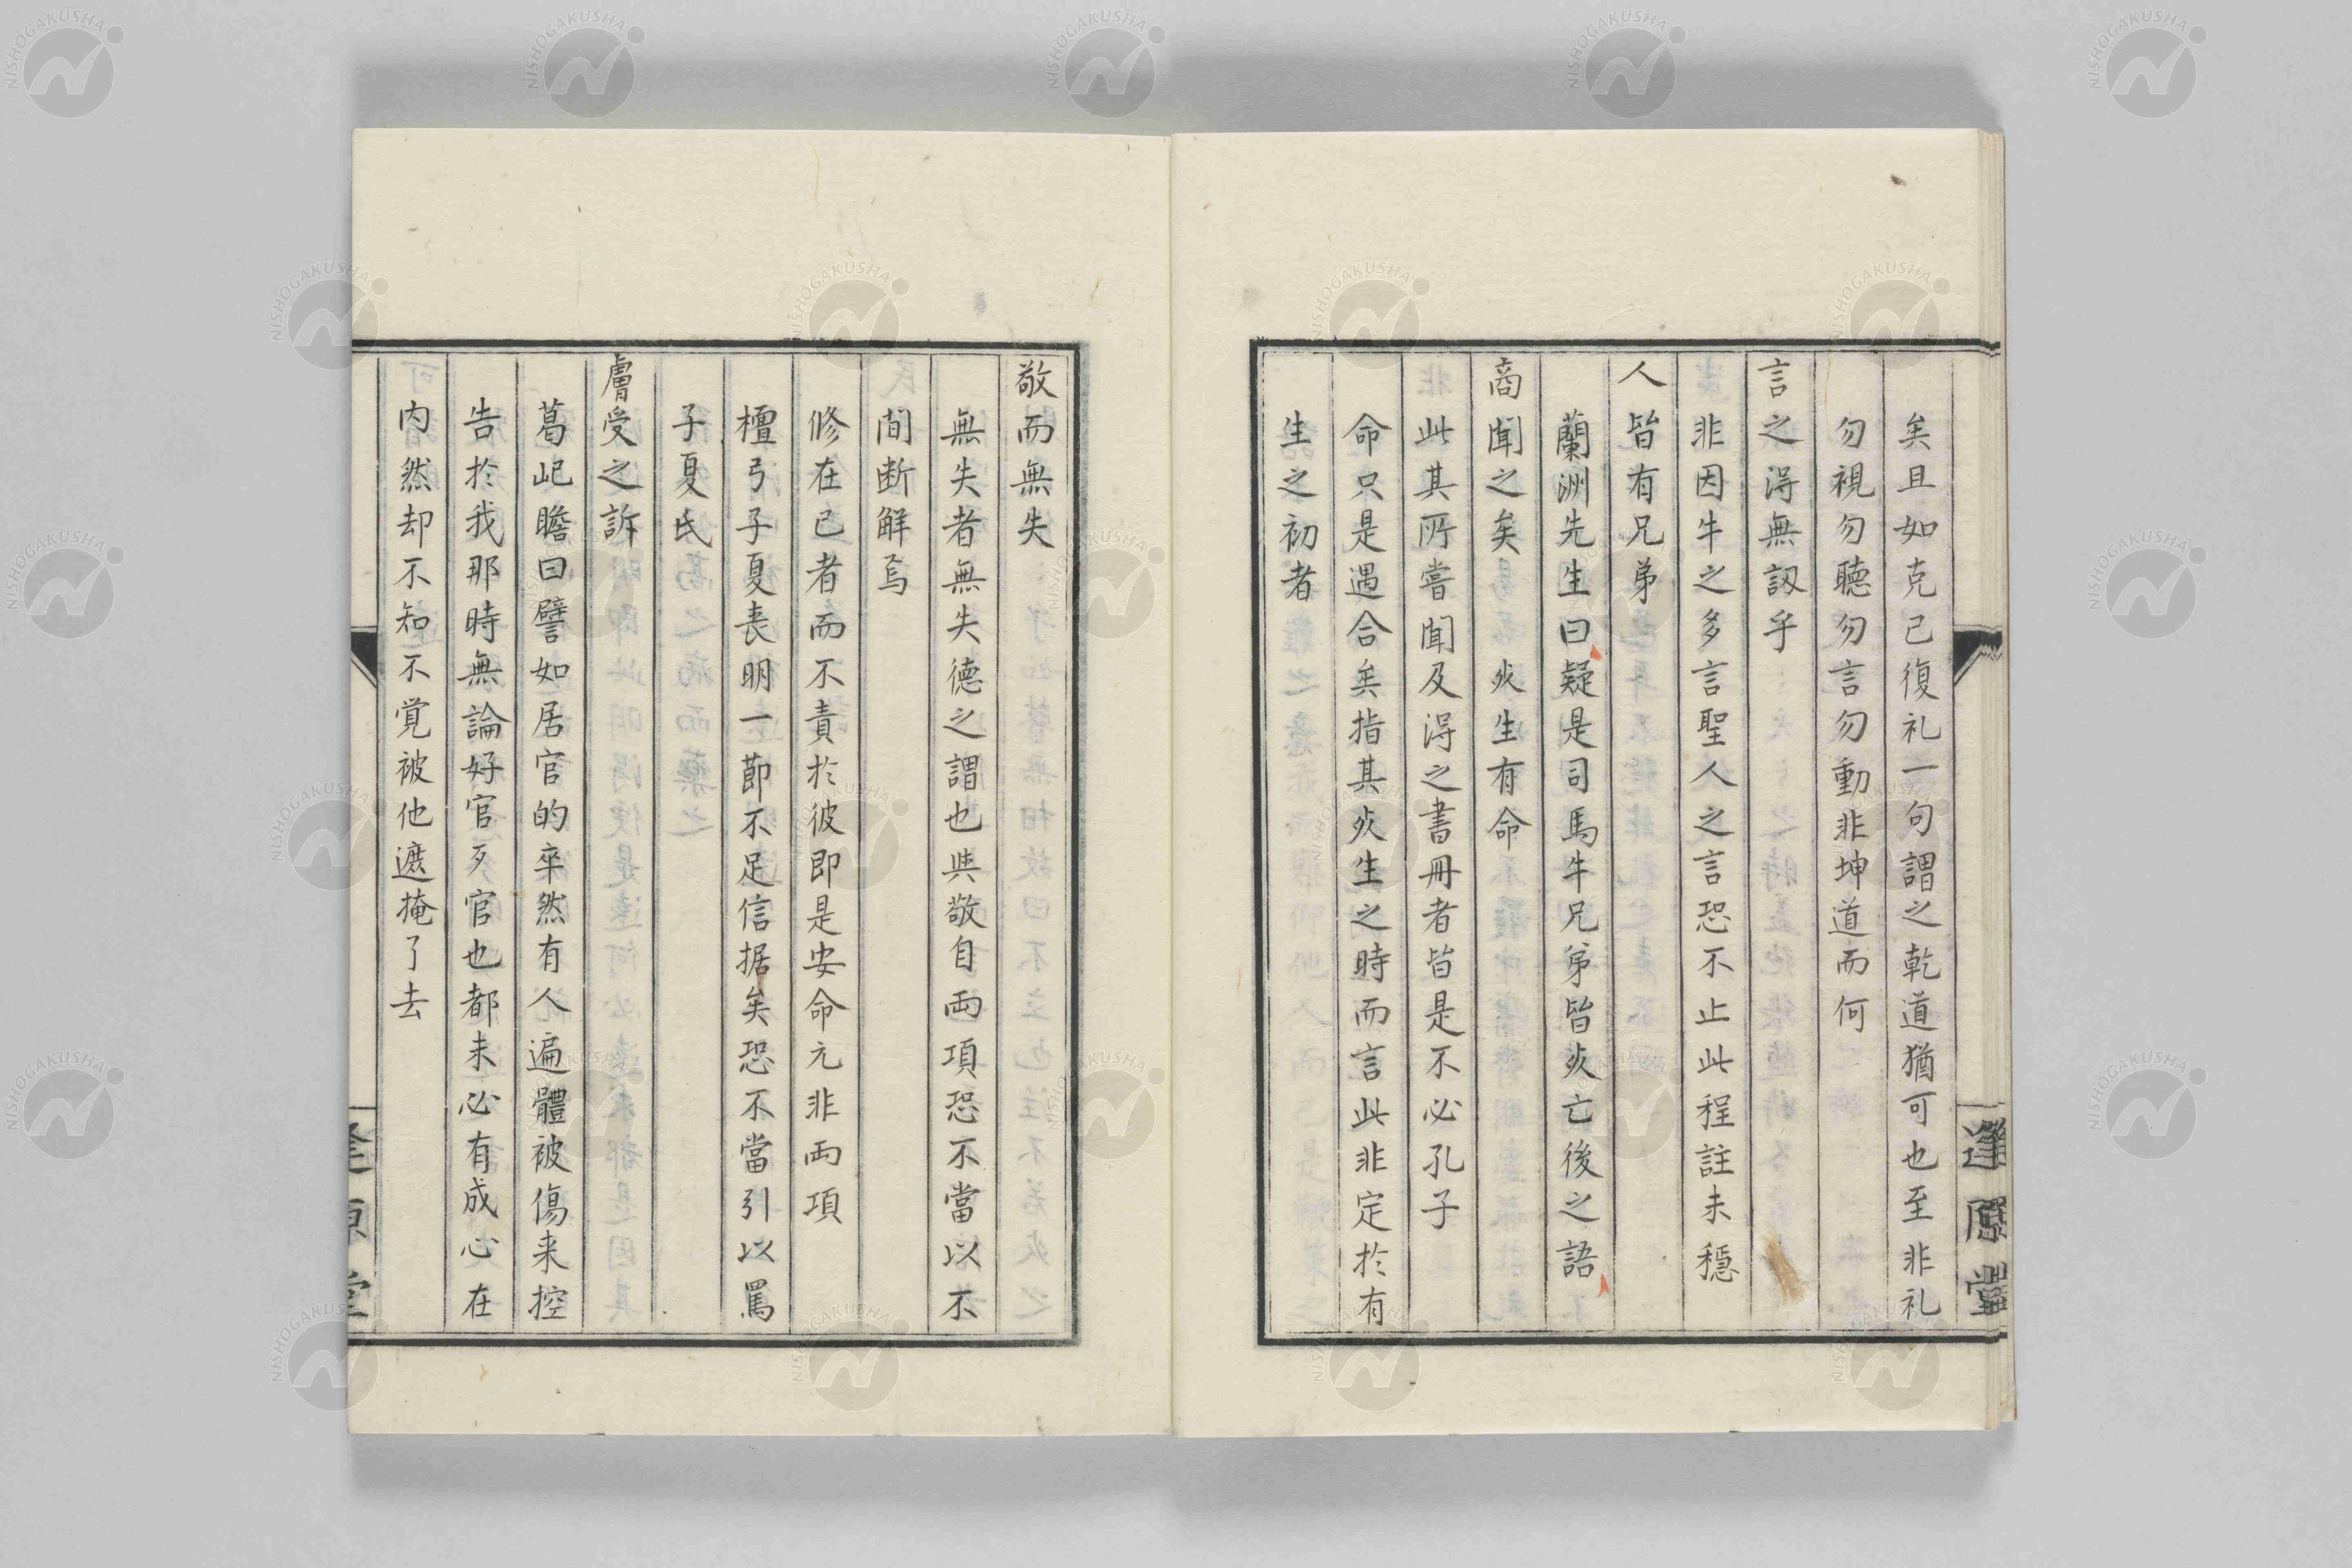 矣且如克己復礼一句謂之乾道猶可也至非礼
勿視勿聴勿言勿動非坤道而何
言之得無訒乎
非因牛之多言聖人之言恐不止此程註未穏
人皆有兄弟
蘭洲先生曰疑是司馬牛兄弟皆死亡後之語
商聞之矣 死生有命
此其所嘗聞及得之書冊者皆是不必孔子
命只是遇合矣指其死生之時而言此非定於有
生之初者
逢原堂
敬而無失
無失者無失德之謂也與敬自両項恐不當以不
間断解焉
修在己者而不責於彼即是安命元非両項
檀弓子夏喪明一節不足信据矣恐不當引以罵
子夏氏
膚受之訴
葛屺瞻曰譬如居官的卒然有人遍體被傷来控
告於我那時無論好官歹官也都未必有成心在
内然却不知不覚被他遮掩了去
逢原堂
NISHOGAKUSHA